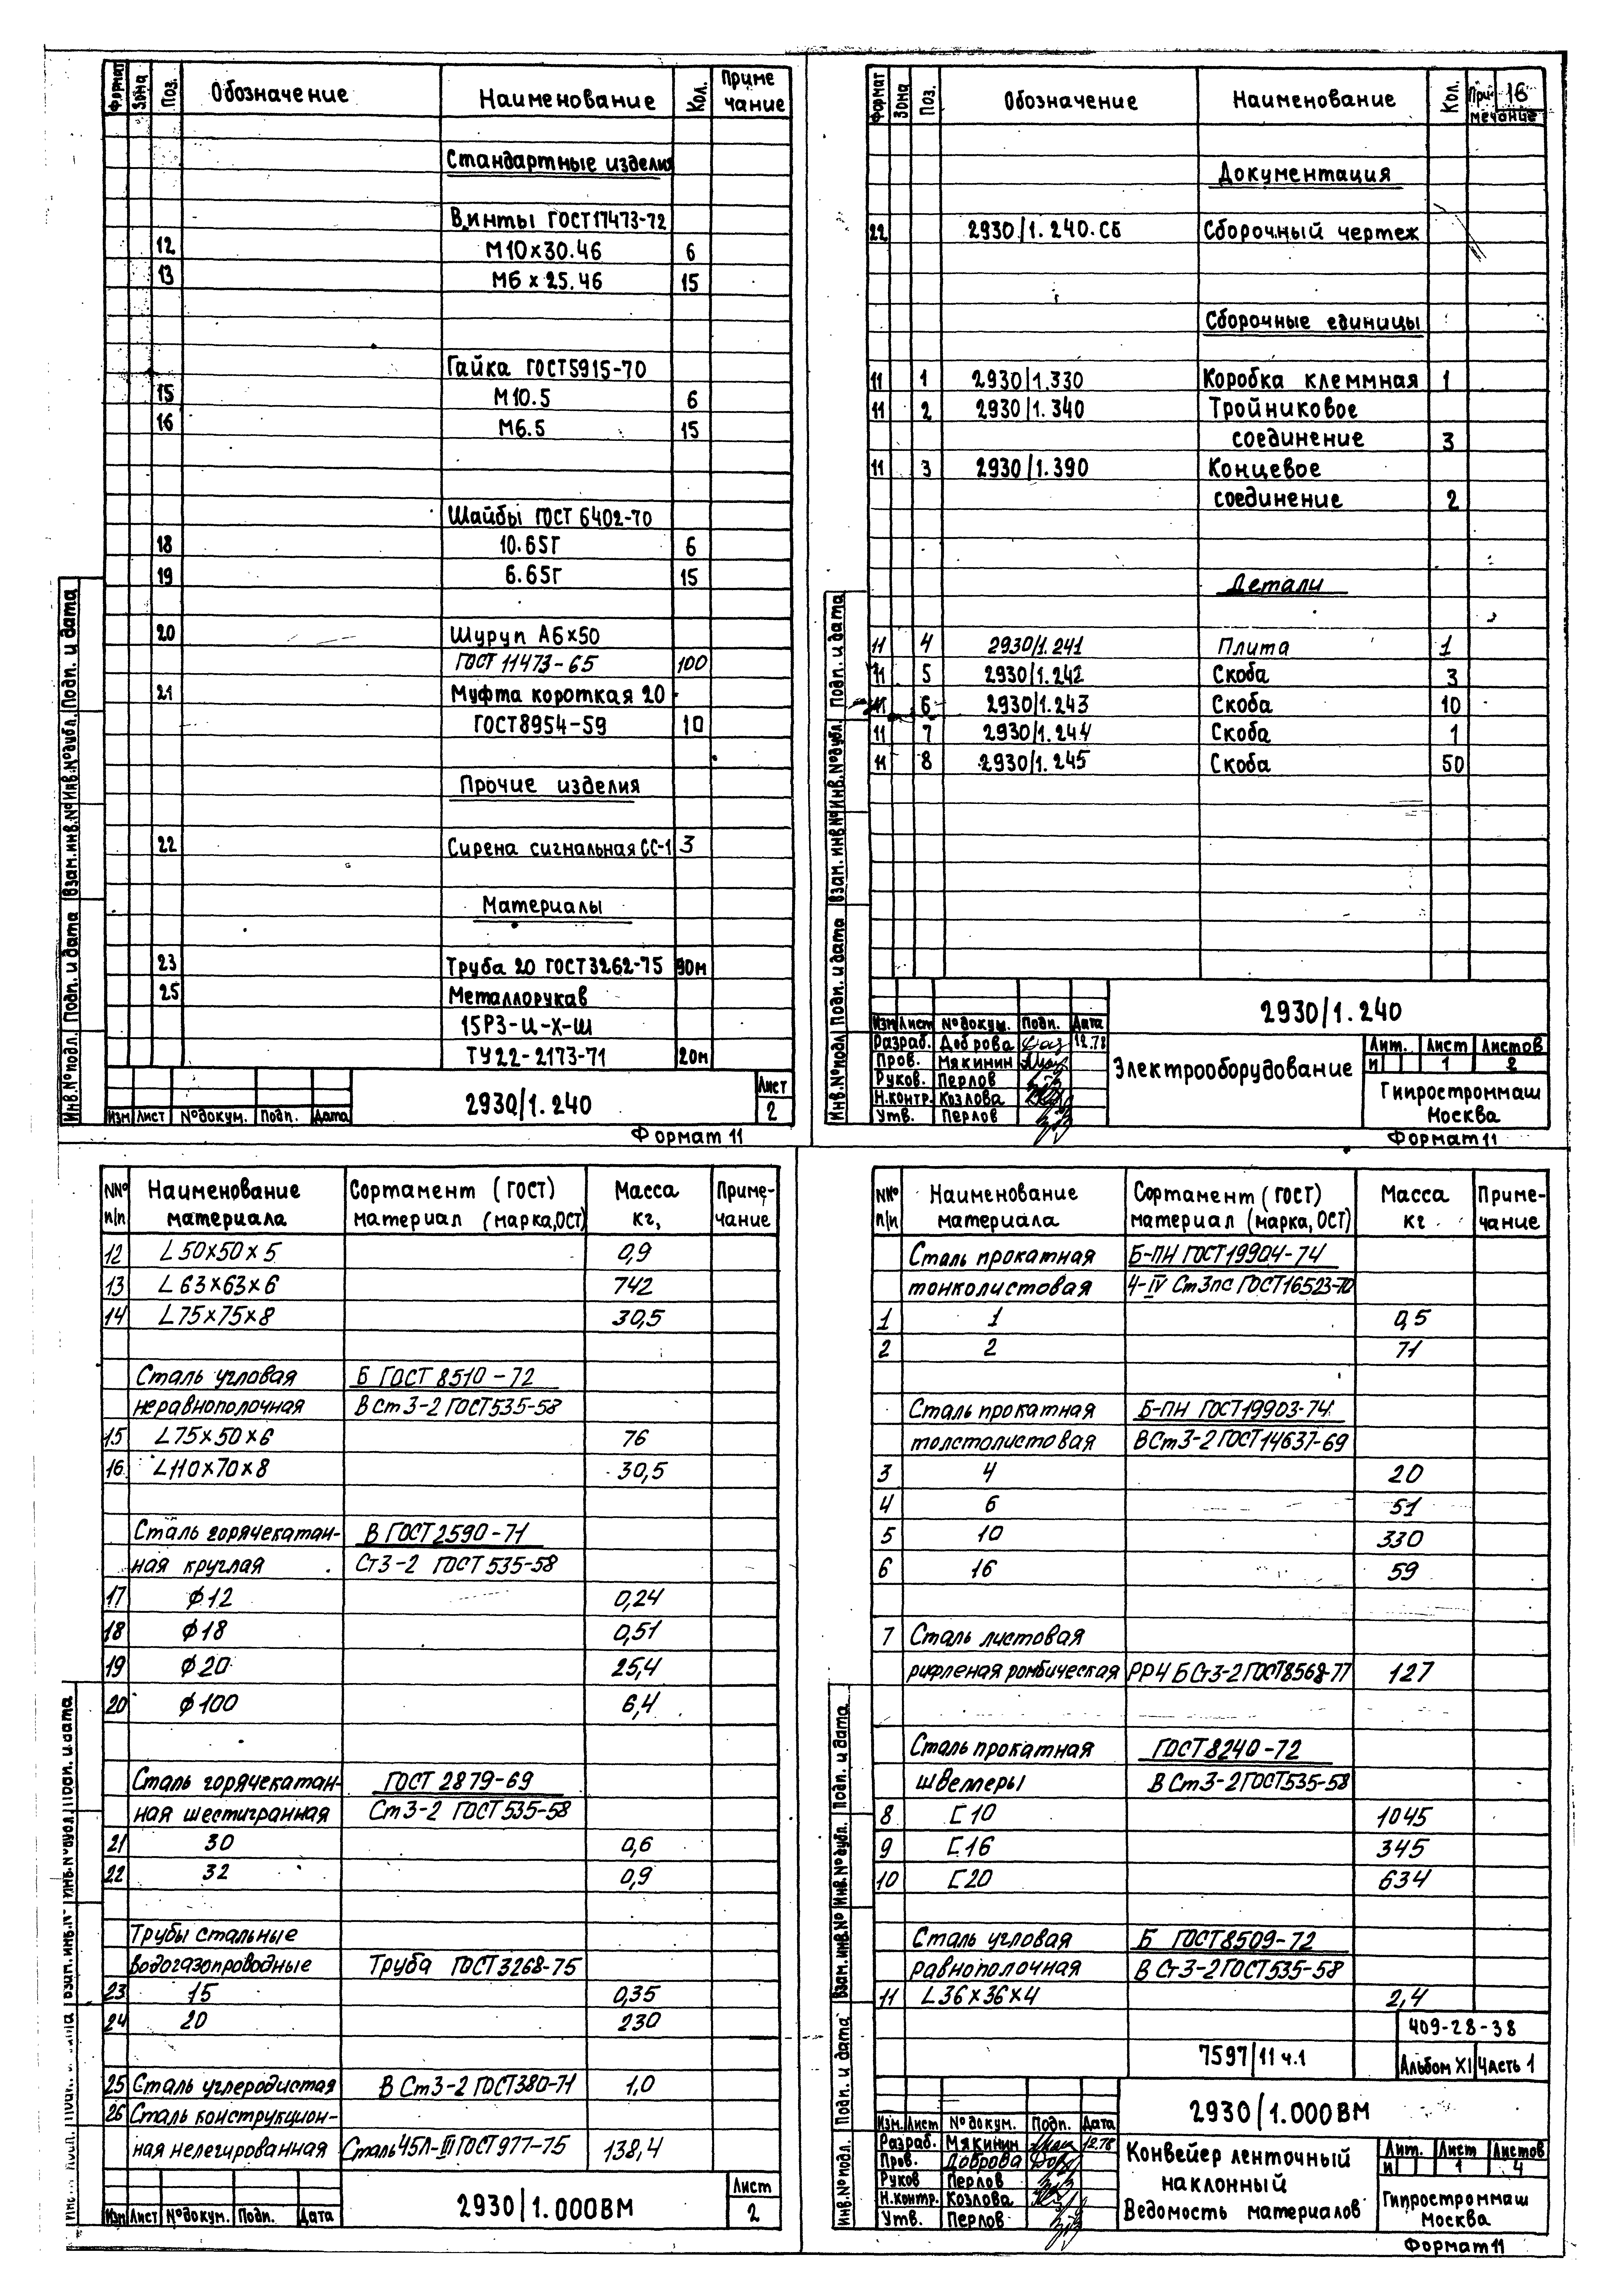 Формат Зона Поз. Обозначение Наименование Кол. Приме чание
Стандартные изделия
Винты ГОСТ17473-72
12 М10х30.46 6
13 М6 х 25.46 15
Гайка ГОСТ5915-70
15 М10.5 6
16 М6.5 15
Шайбы ГОСТ 6402-70
18 10.65Г 6
19 6.65Г 15
20 Шуруп А6х50
ГОСТ 11473-65 100
21 Муфта короткая 20
ГОСТ8954-59 10
Прочие изделия
22 Сирена сигнальная СС-1 3
Материалы
23 Труба 20 ГОСТ3262-75 90м
25 Металлорукав
15Р3-Ц-Х-Ш
ТУ22-2173-71 20м
Инв.№подл. Подп. и дата Взам.инв.№ Инв.№дубл. Подп. и дата
Изм Лист №докум. Подп. Дата
2930/1.240
Лист
2
Формат 11
Формат Зона Поз. Обозначение Наименование Кол. При- мечание
16
Документация
22 2930/1.240.СБ Сборочный чертеж
Сборочные единицы
11 1 2930/1.330 Коробка клеммная 1
11 2 2930/1.340 Тройниковое
соединение 3
11 3 2930/1.390 Концевое
соединение 2
Детали
11 4 2930/1.241 Плита 1
11 5 2930/1.242 Скоба 3
11 6 2930/1.243 Скоба 10
11 7 2930/1.244 Скоба 1
11 8 2930/1.245 Скоба 50
Инв.№подл. Подп. и дата Взам. инв.№ Инв.№дубл. Подп. и дата
2930/1.240
Изм Лист №докум. Подп. Дата
Разраб. Доброва 12.78
Пров. Мякинин
Руков. Перлов
Н.контр. Козлова
Утв. Перлов
Электрооборудование
Лит. Лист Листов
И 1 2
Гипростроммаш
Москва
Формат 11
NNº п/п Наименование материала Сортамент (ГОСТ) материал (марка,ОСТ) Масса кг, Приме- чание
12 L 50х50х5 0,9
13 L 63х63х6 742
14 L75х75х8 30,5
Сталь угловая Б ГОСТ 8510-72
неравнополочная В Ст3-2 ГОСТ535-58
15 L75х50х6 76
16 L110х70х8 30,5
Сталь горячекатан- В ГОСТ2590-71
ная круглая Ст3-2 ГОСТ535-58
17 ϕ12 0,24
18 ϕ18 0,51
19 ϕ20 25,4
20 ϕ100 6,4
Сталь горячекатан- ГОСТ 2879-69
ная шестигранная Ст3-2 ГОСТ535-58
21 30 0,6
22 32 0,9
Трубы стальные
водогазопроводные Труба ГОСТ3268-75
23 15 0,35
24 20 230
25 Сталь углеродистая В Ст3-2 ГОСТ380-71 1,0
26 Сталь конструкцион-
ная нелегированная Сталь45Л-III ГОСТ977-75 138,4
Изм Лист №докум. Подп. Дата
2930/1.000ВМ
Лист
2
NNº п/п Наименование материала Сортамент (ГОСТ) материал (марка, ОСТ) Масса кг Приме- чание
Сталь прокатная Б-ПН ГОСТ19904-74
тонколистовая 4-IV Ст3пс ГОСТ16523-70
1 1 0,5
2 2 71
Сталь прокатная Б-ПН ГОСТ19903-74
толстолистовая В Ст3-2 ГОСТ14637-69
3 4 20
4 6 51
5 10 330
6 16 59
7 Сталь листовая
рифленая ромбическая РР4 Б Ст3-2 ГОСТ8568-77 127
Сталь прокатная ГОСТ8240-72
швеллеры В Ст3-2 ГОСТ535-58
8 [10 1045
9 [16 345
10 [20 634
Сталь угловая Б ГОСТ8509-72
равнополочная В Ст3-2 ГОСТ535-58
11 L36х36х4 2,4
409-28-38
7597/11 ч.1 Альбом XI Часть 1
Инв.№подл. Подп. и дата Взам.инв.№ Инв.№дубл. Подп. и дата
2930/1.000ВМ
Изм. Лист №докум. Подп. Дата
Разраб. Мякинин 12.78
Пров. Доброва
Руков Перлов
Н.контр. Козлова
Утв. Перлов
Конвейер ленточный
наклонный
Ведомость материалов
Лит. Лист Листов
И 1 4
Гипростроммаш
Москва
Формат 11